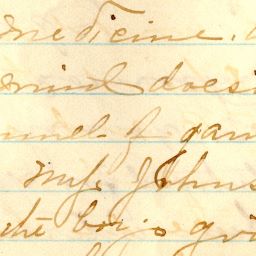 medicine.
mind does
much of gam
Mrs Johns
the boys gri